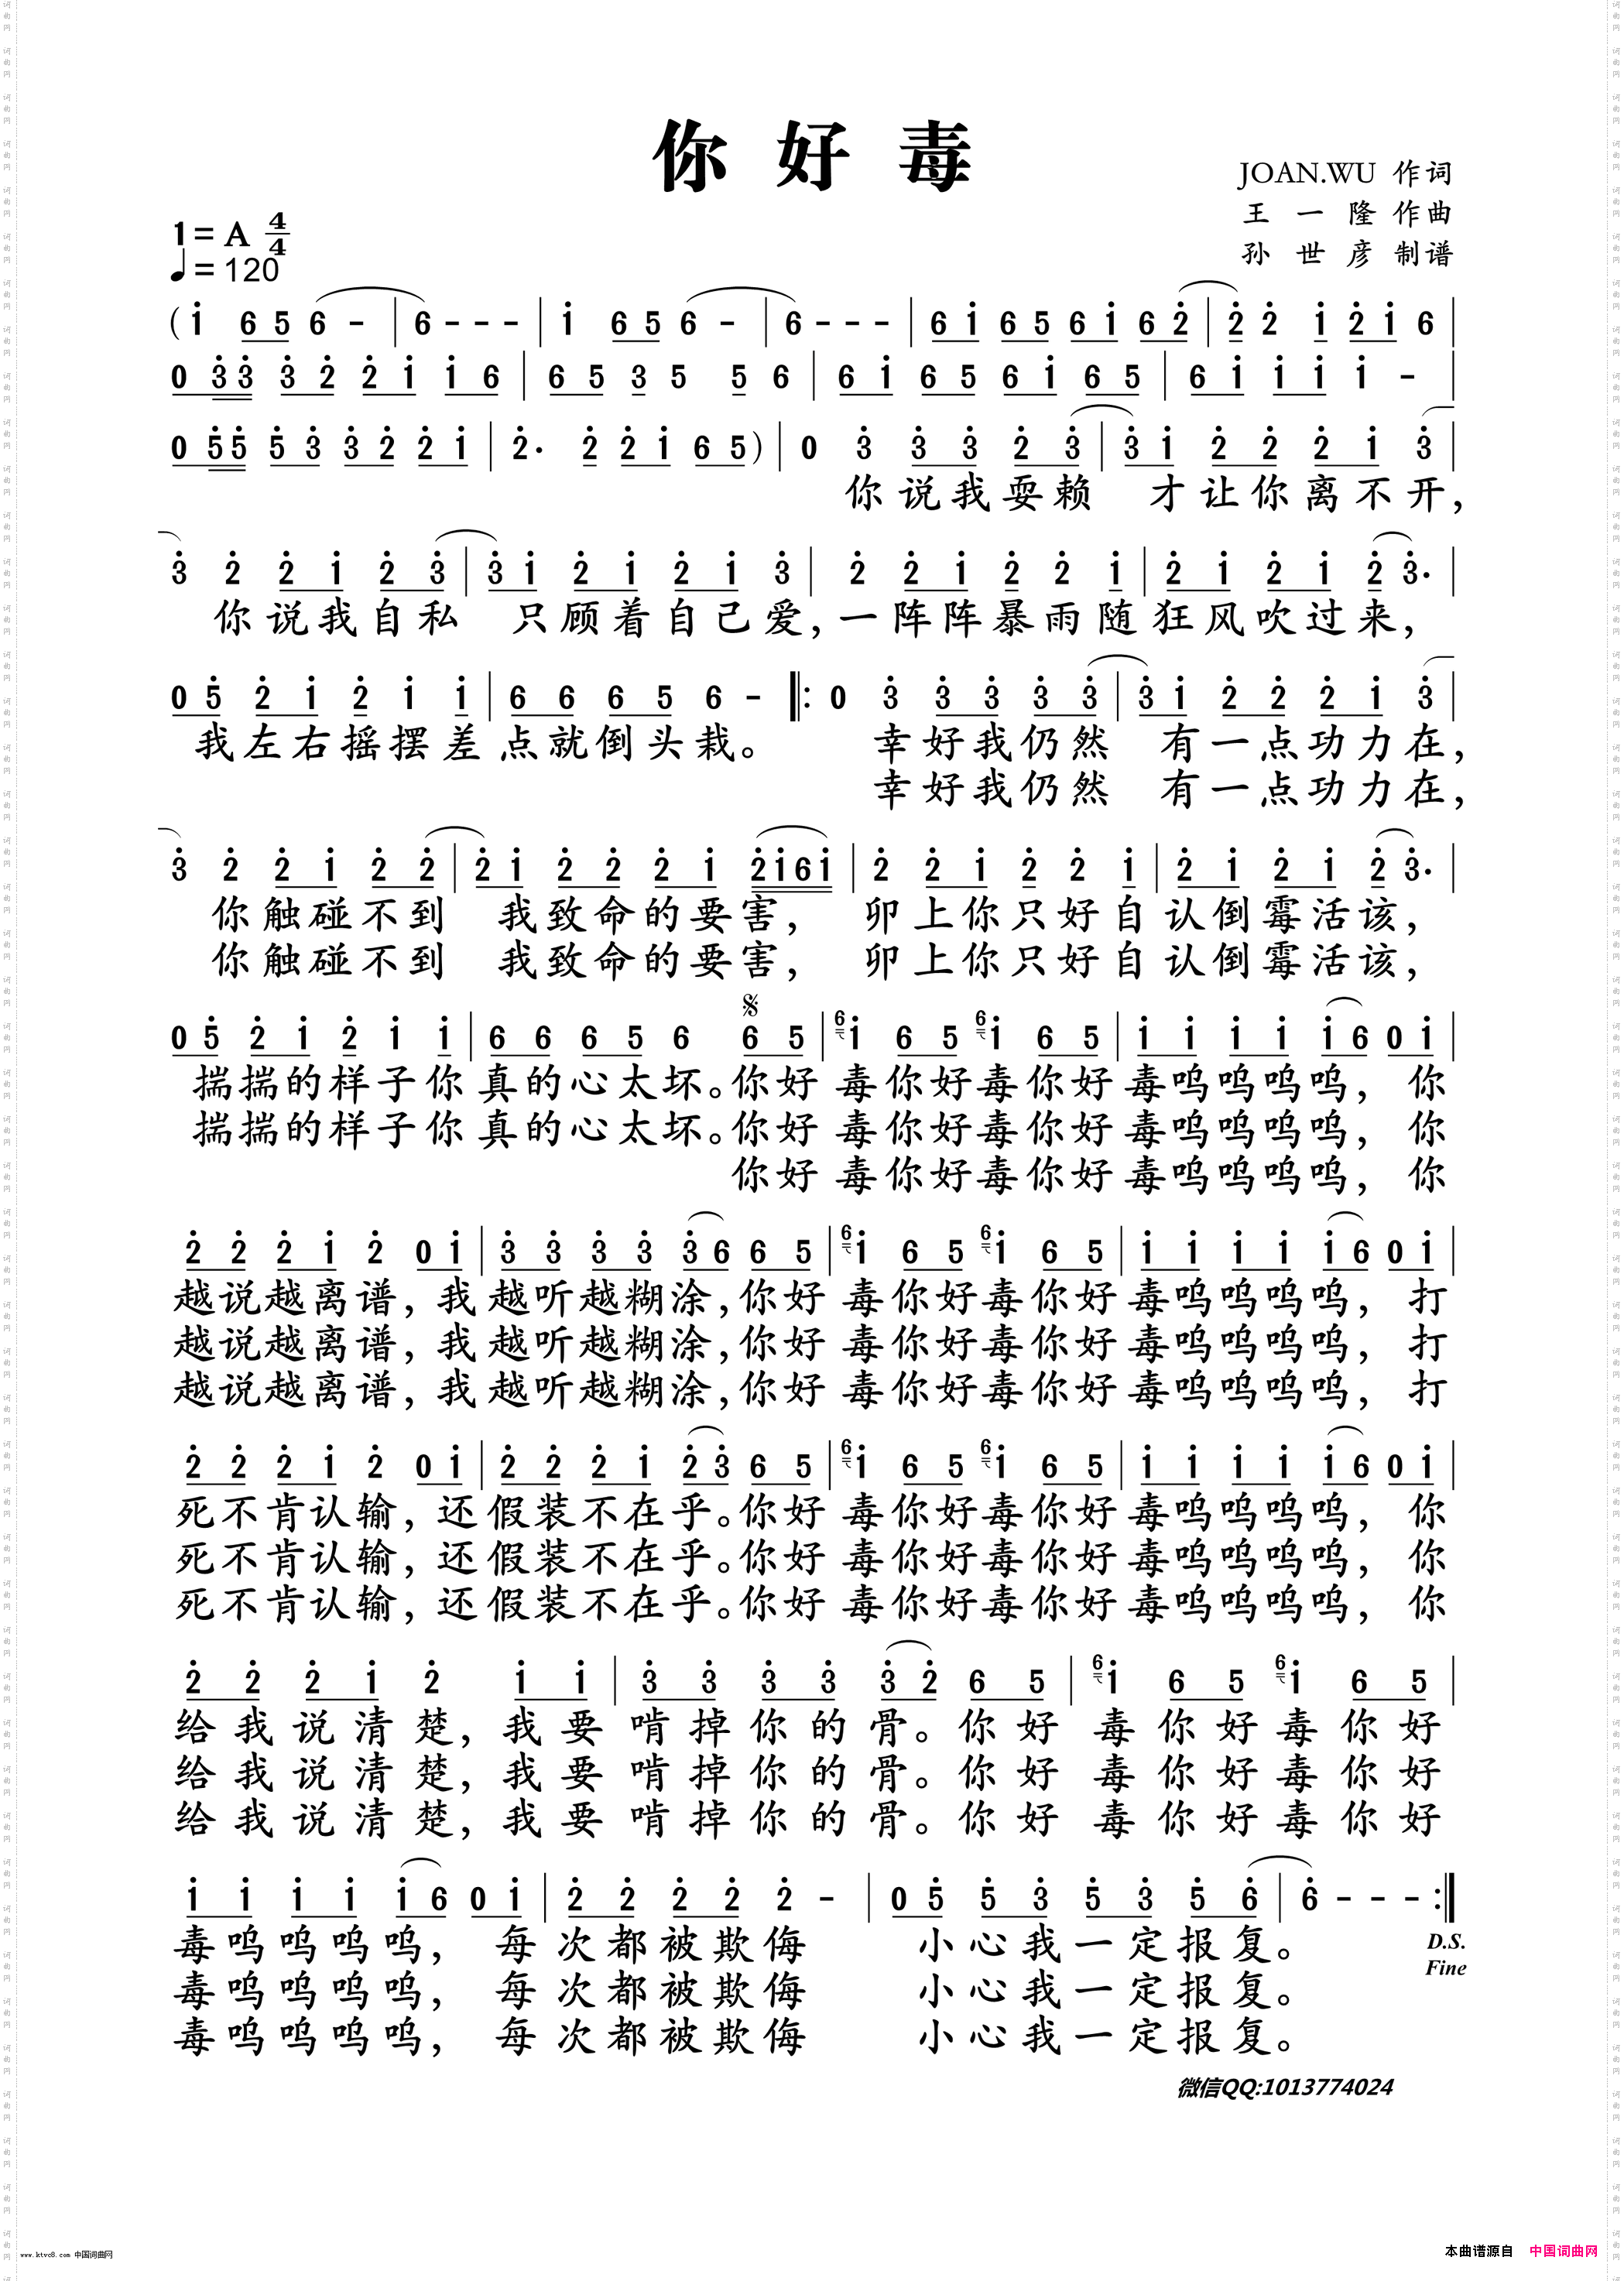 你好毒
JOAN.WU 作词
王一隆作曲
孙世彦制谱
1=A 4/4
♩=120
(i 6 5 6 - | 6 - - - | i 6 5 6 - | 6 - - - | 6 i 6 5 6 i 6 2̇ | 2̇ 2̇ i 2̇ i 6 |
0 3̇ 3̇ 3̇ 2̇ 2̇ i i 6 | 6 5 3 5 5 6 | 6 i 6 5 6 i 6 5 | 6 i i i i - |
0 5̇ 5̇ 5̇ 3̇ 3̇ 2̇ 2̇ i | 2̇. 2̇ 2̇ i 6 5) | 0 3̇ 3̇ 3̇ 2̇ 3̇ | 3̇ i 2̇ 2̇ 2̇ i 3̇ |
你说我耍赖 才让你离不开,
3̇ 2̇ 2̇ i 2̇ 3̇ | 3̇ i 2̇ i 2̇ i 3̇ | 2̇ 2̇ i 2̇ 2̇ i | 2̇ i 2̇ i 2̇ 3̇. |
你说我自私 只顾着自己爱,一阵阵暴雨随狂风吹过来,
0 5̇ 2̇ i 2̇ i i | 6 6 6 5 6 - ‖: 0 3̇ 3̇ 3̇ 3̇ 3̇ | 3̇ i 2̇ 2̇ 2̇ i 3̇ |
我左右摇摆差点就倒头栽。 幸好我仍然 有一点功力在,
幸好我仍然 有一点功力在,
3̇ 2̇ 2̇ i 2̇ 2̇ | 2̇ i 2̇ 2̇ 2̇ i 2̇ i 6 i | 2̇ 2̇ i 2̇ 2̇ i | 2̇ i 2̇ i 2̇ 3̇. |
你触碰不到 我致命的要害, 卯上你只好自认倒霉活该,
你触碰不到 我致命的要害, 卯上你只好自认倒霉活该,
𝄋
0 5̇ 2̇ i 2̇ i i | 6 6 6 5 6 6 5 | 6 i 6 5 6 i 6 5 | i i i i i 6 0 i |
揣揣的样子你真的心太坏。你好毒你好毒你好毒呜呜呜呜, 你
揣揣的样子你真的心太坏。你好毒你好毒你好毒呜呜呜呜, 你
你好毒你好毒你好毒呜呜呜呜, 你
2̇ 2̇ 2̇ i 2̇ 0 i | 3̇ 3̇ 3̇ 3̇ 3̇ 6 6 5 | 6 i 6 5 6 i 6 5 | i i i i i 6 0 i |
越说越离谱,我越听越糊涂,你好毒你好毒你好毒呜呜呜呜, 打
越说越离谱,我越听越糊涂,你好毒你好毒你好毒呜呜呜呜, 打
越说越离谱,我越听越糊涂,你好毒你好毒你好毒呜呜呜呜, 打
2̇ 2̇ 2̇ i 2̇ 0 i | 2̇ 2̇ 2̇ i 2̇ 3̇ 6 5 | 6 i 6 5 6 i 6 5 | i i i i i 6 0 i |
死不肯认输,还假装不在乎。你好毒你好毒你好毒呜呜呜呜, 你
死不肯认输,还假装不在乎。你好毒你好毒你好毒呜呜呜呜, 你
死不肯认输,还假装不在乎。你好毒你好毒你好毒呜呜呜呜, 你
2̇ 2̇ 2̇ i 2̇ i i | 3̇ 3̇ 3̇ 3̇ 3̇ 2̇ 6 5 | 6 i 6 5 6 i 6 5 |
给我说清楚,我要啃掉你的骨。你好毒你好毒你好
给我说清楚,我要啃掉你的骨。你好毒你好毒你好
给我说清楚,我要啃掉你的骨。你好毒你好毒你好
i i i i i 6 0 i | 2̇ 2̇ 2̇ 2̇ 2̇ - | 0 5̇ 5̇ 3̇ 5̇ 3̇ 5̇ 6̇ | 6̇ - - - :‖
毒呜呜呜呜, 每次都被欺侮 小心我一定报复。
D.S.
Fine
毒呜呜呜呜, 每次都被欺侮 小心我一定报复。
毒呜呜呜呜, 每次都被欺侮 小心我一定报复。
微信QQ:1013774024
www.ktvc8.com 中国词曲网
本曲谱源自 中国词曲网